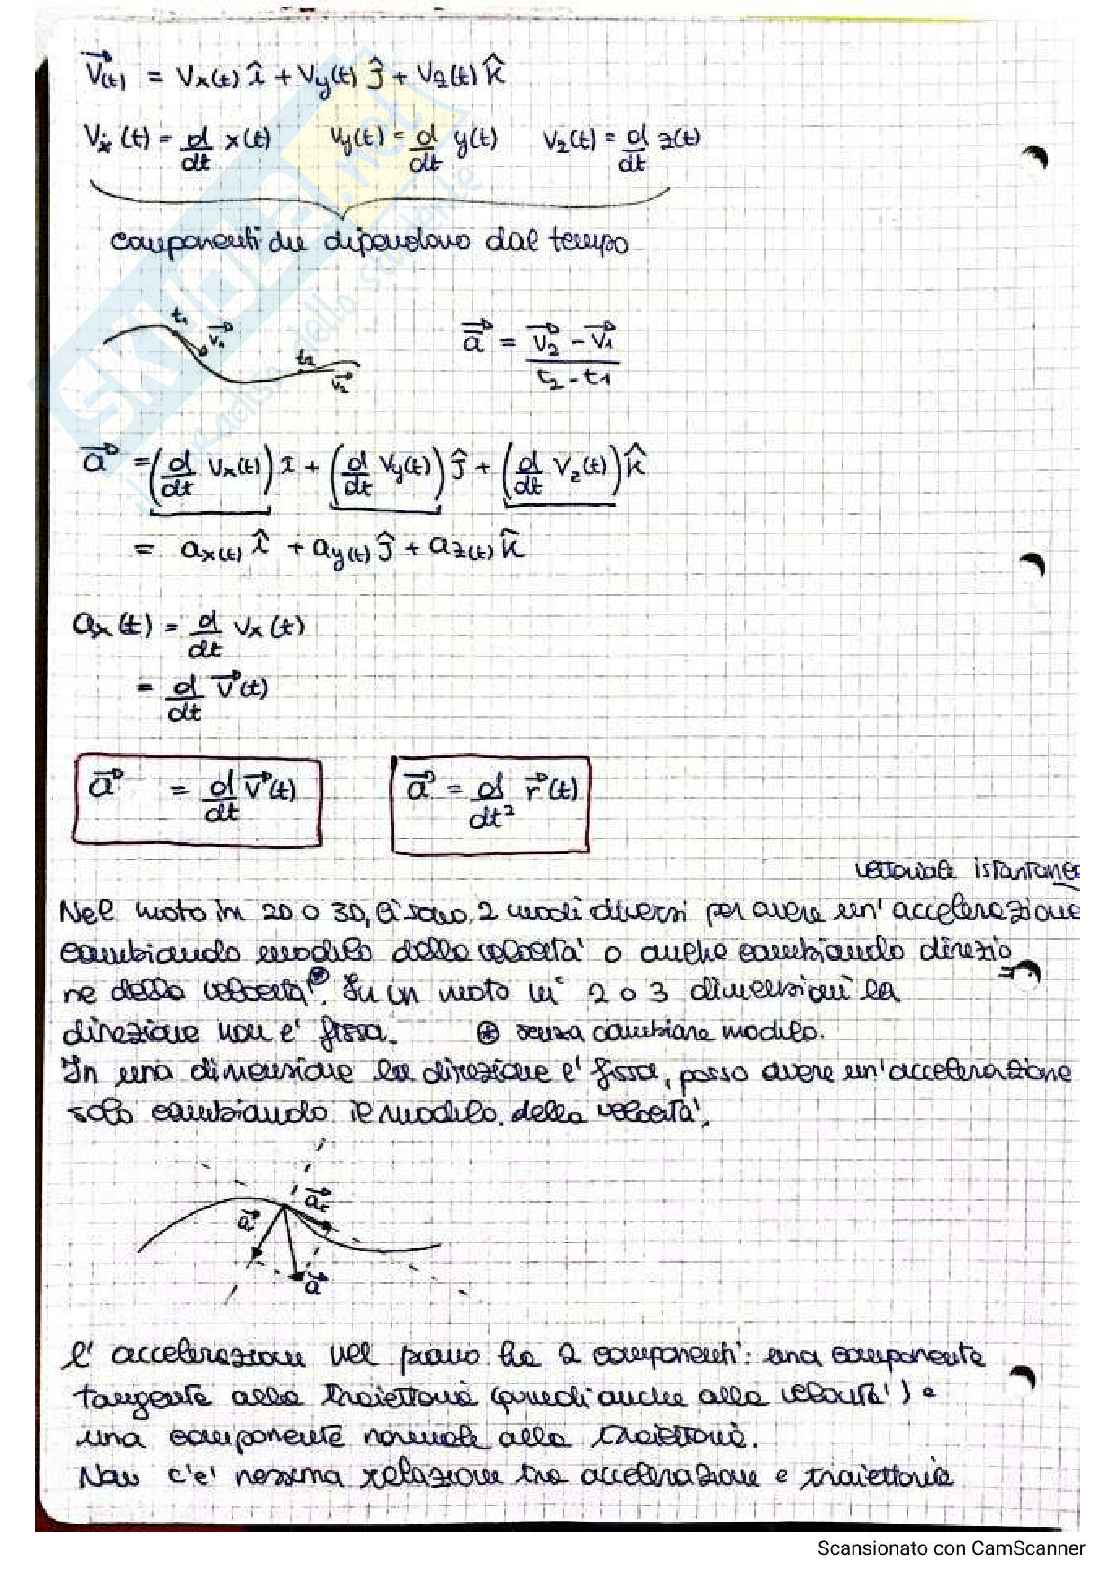 V⃗(t) = Vx(t) î + Vy(t) ĵ + Vz(t) k̂
Vx(t) = d/dt x(t)   Vy(t) = d/dt y(t)   Vz(t) = d/dt z(t)
componenti che dipendono dal tempo
t1 V⃗1 t2 V⃗2
a⃗ = (V⃗2 - V⃗1)/(t2 - t1)
a⃗ = (d/dt Vx(t)) î + (d/dt Vy(t)) ĵ + (d/dt Vz(t)) k̂
= ax(t) î + ay(t) ĵ + az(t) k̂
ax(t) = d/dt Vx(t)
= d/dt V⃗(t)
a⃗ = d/dt V⃗(t)   a⃗ = d/dt² r⃗(t)
vettoriale istantanea
Nel moto in 2D o 3D, ci sono 2 modi diversi per avere un'accelerazione
cambiando modulo della velocità o anche cambiando direzio
ne della velocità⊛. In un moto in 2 o 3 dimensioni la
direzione non e' fissa.   ⊛ senza cambiare modulo.
In una dimensione la direzione e' fissa, posso avere un'accelerazione
solo cambiando il modulo della velocità.
a⃗ a⃗t
a⃗
l'accelerazione nel piano ha 2 componenti: una componente
tangente alla traiettoria (quindi anche alla velocità) e
una componente normale alla traiettoria.
Non c'e' nessuna relazione tra accelerazione e traiettoria
SKUOLA.net
Scansionato con CamScanner